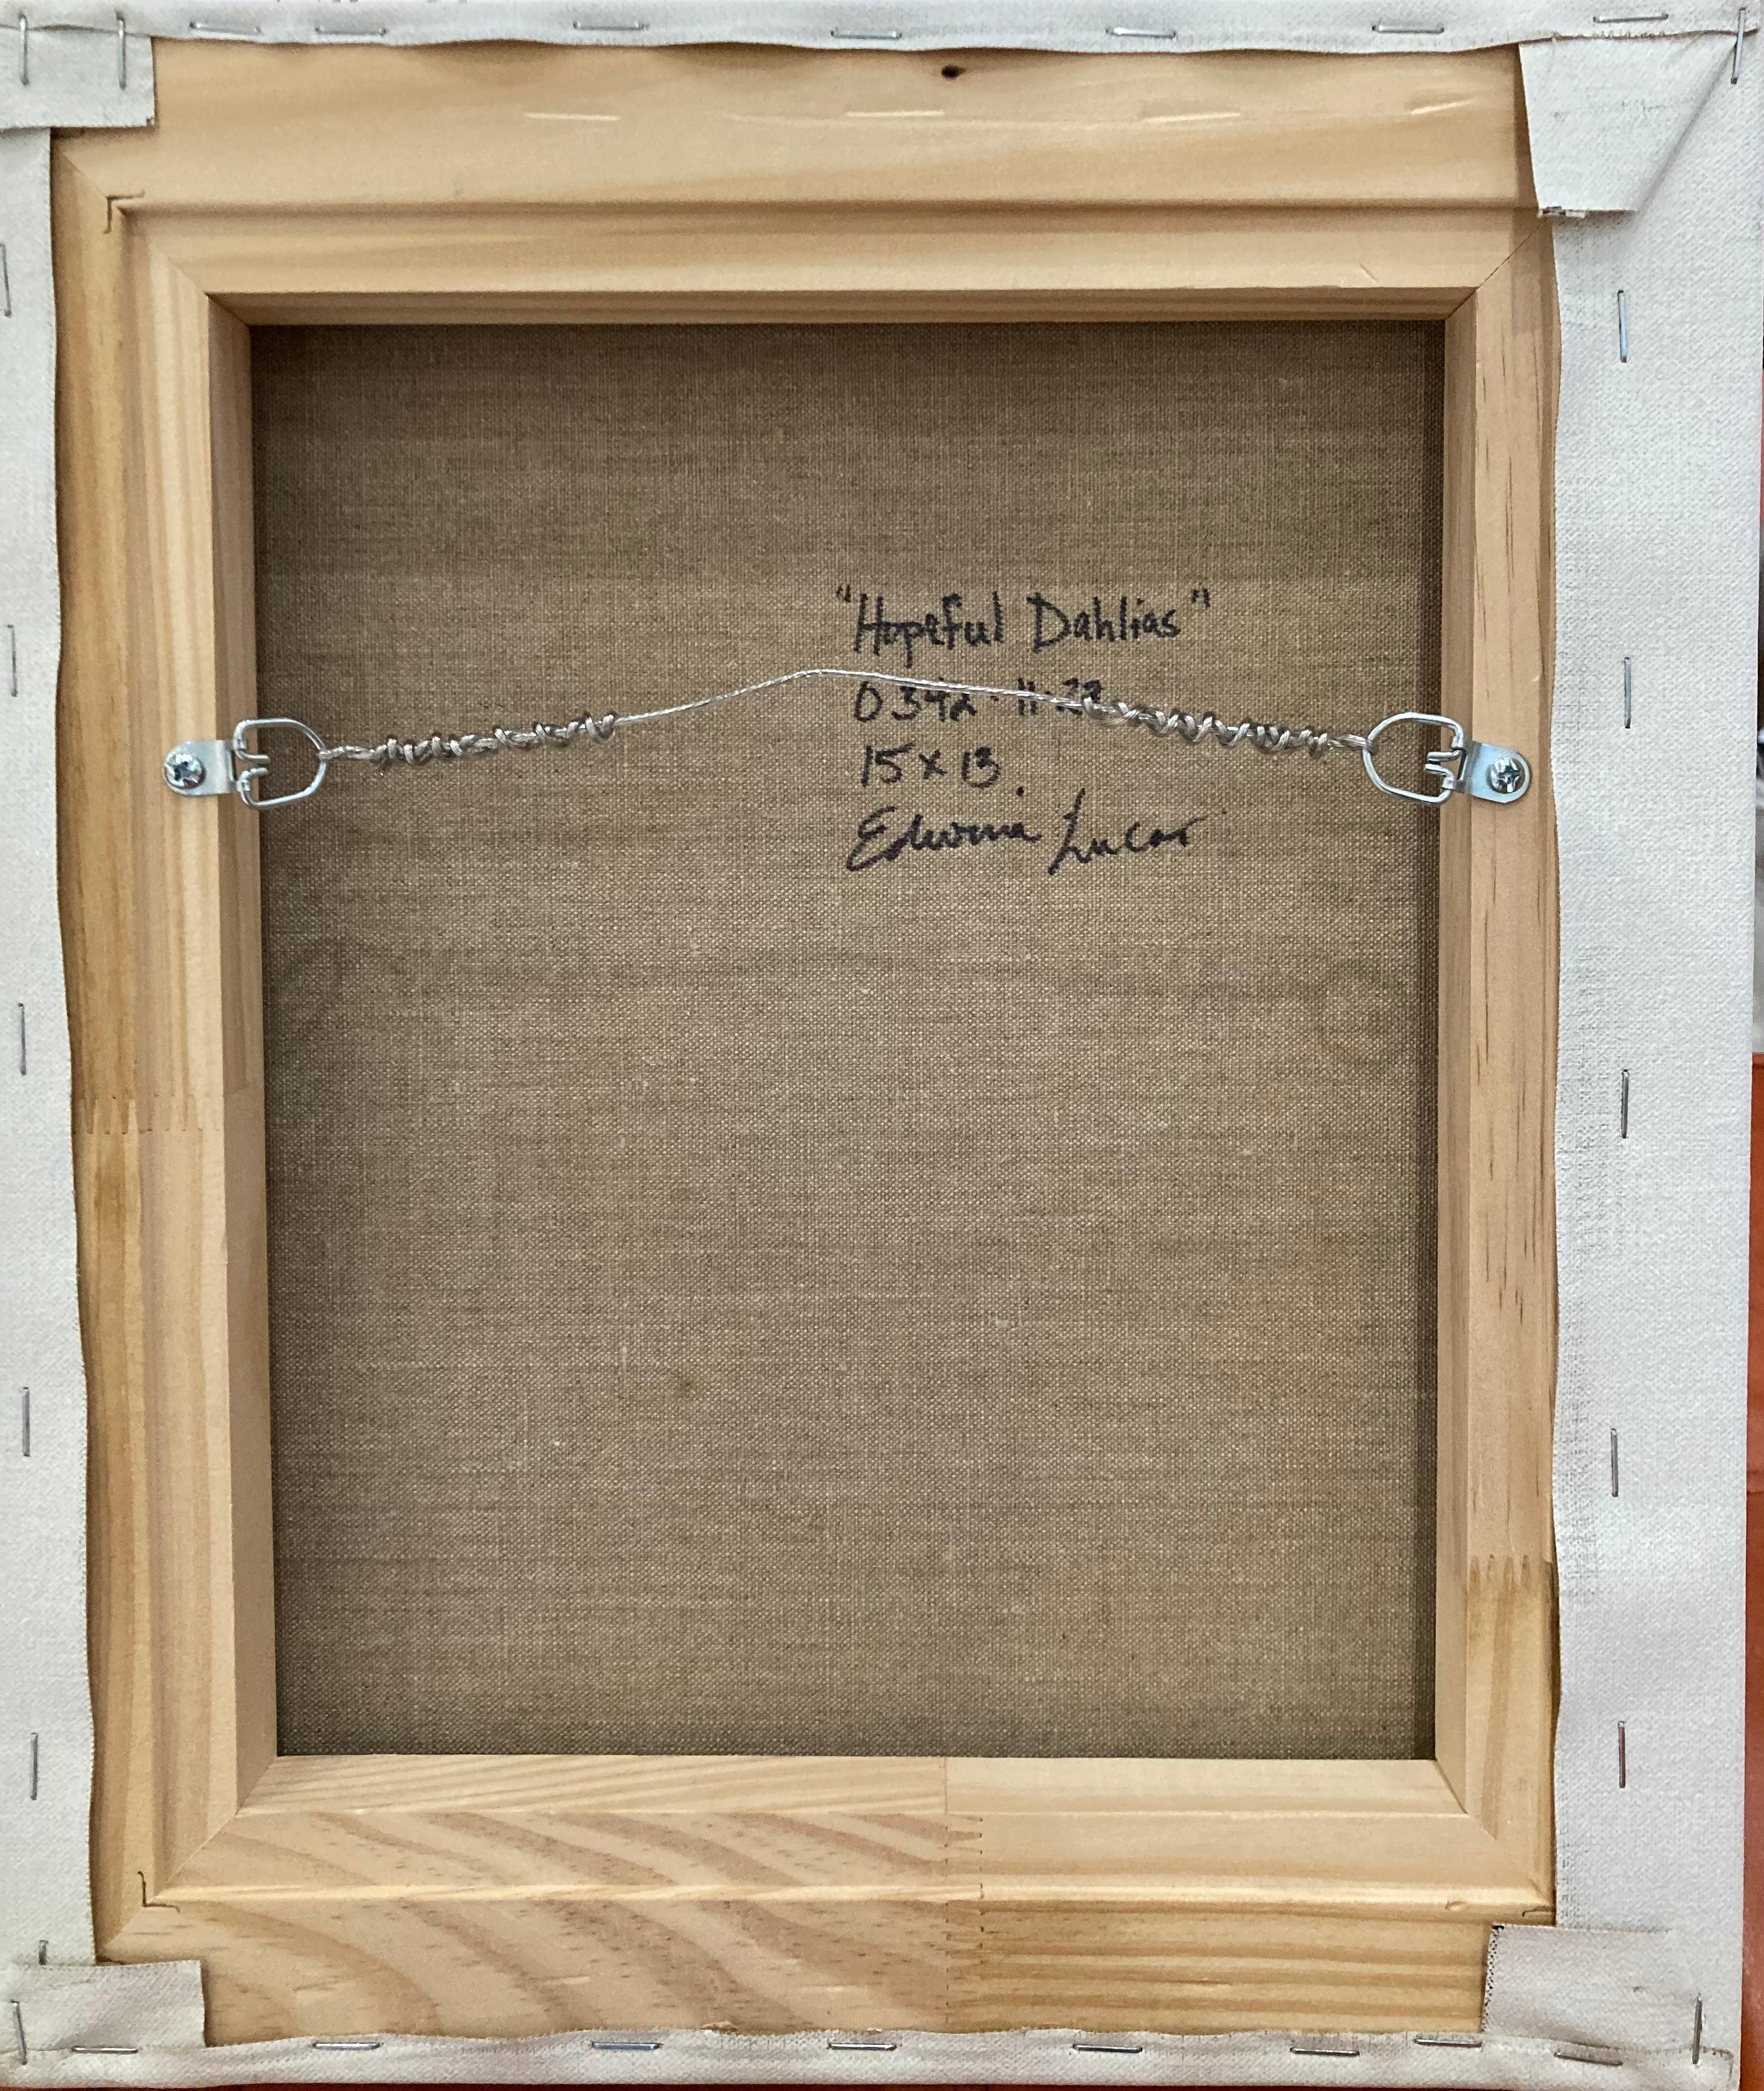 "Hopeful Dahlias"
0342·11·22
15 x 13
Edwina Lucas